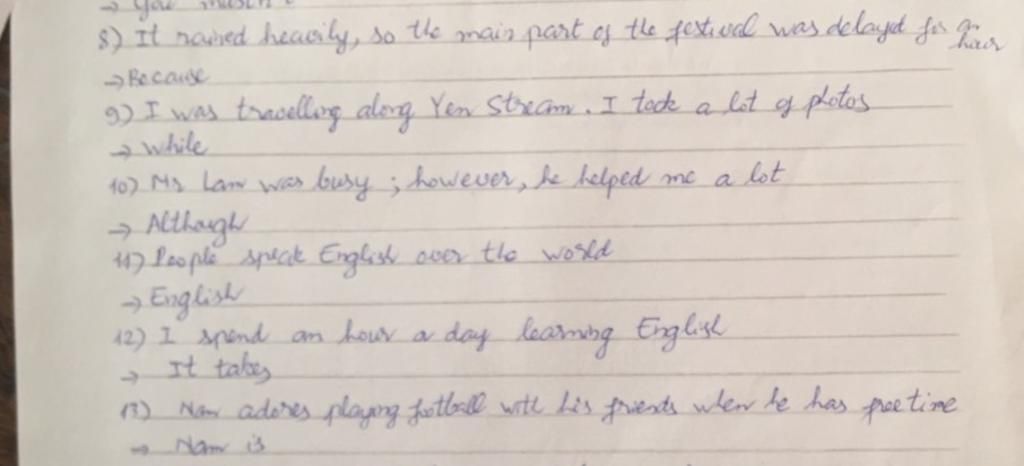 → You mustn't
8) It rained heavily, so the main part of the festival was delayed for an hour
→ Because
9) I was travelling along Yen Stream. I took a lot of photos
→ While
10) Mr Lam was busy ; however, he helped me a lot
→ Although
11) People speak English over the world
→ English
12) I spend an hour a day learning English
→ It takes
13) Nam adores playing football with his friends when he has free time
→ Nam is